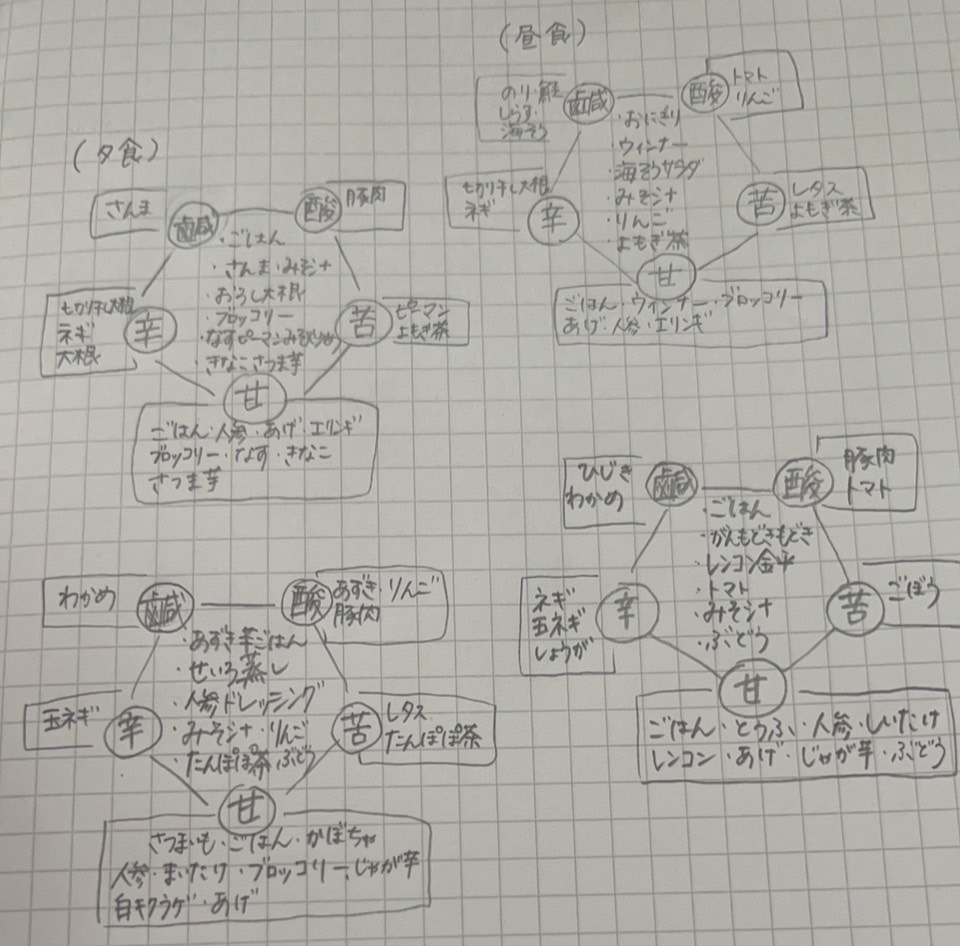 (昼食)
のり・鮭
しらす・
海そう
鹹
酸
トマト
りんご
・おにぎり
・ウィンナー
・海そうサラダ
・みそシナ
・りんご
・よもぎ茶
七切り干し大根
ネギ
辛
苦
レタス
よもぎ茶
甘
ごはん・ウィンナー・ブロッコリー
あげ・人参・エリンギ
(夕食)
さんま
鹹
酸
豚肉
・ごはん
・さんま・みそシナ
・おろし大根
・ブロッコリー
・なすピーマンみそ炒め
・きなこさつま芋
七切り干し大根
ネギ
大根
辛
苦
ピーマン
よもぎ茶
甘
ごはん・人参・あげ・エリンギ
ブロッコリー・なす・きなこ
さつま芋
ひじき
わかめ
鹹
酸
豚肉
トマト
・ごはん
・がんもどきもどき
・レンコン金平
・トマト
・みそシナ
・ぶどう
ネギ
玉ネギ
しょうが
辛
苦
ごぼう
甘
ごはん・とうふ・人参・しいたけ
レンコン・あげ・じゃが芋・ぶどう
わかめ
鹹
酸
あずき・りんご
豚肉
・あずき芋ごはん
・せいろ蒸し
・人参ドレッシング
・みそシナ・りんご
・たんぽぽ茶・ぶどう
玉ネギ
辛
苦
レタス
たんぽぽ茶
甘
さつまいも・ごはん・かぼちゃ
人参・まいたけ・ブロッコリー・じゃが芋
白キクラゲ・あげ